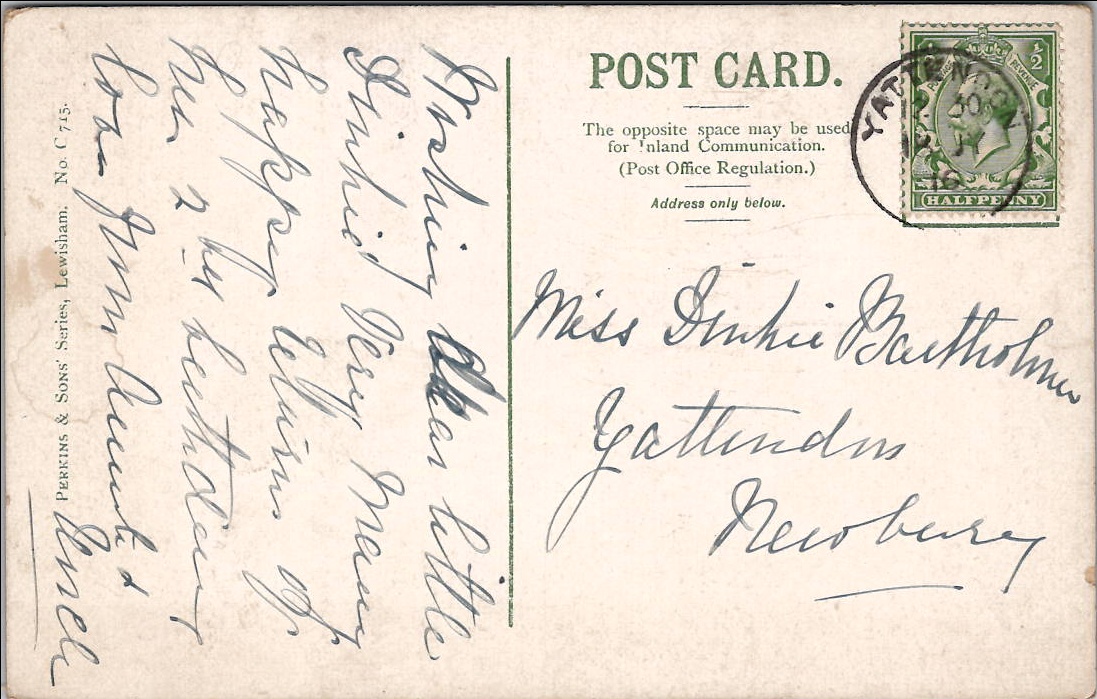 Wishing Dear little
Dinkie Very Many
happy Returns of
her 2nd birthday
love from Aunt &
Uncle
PERKINS & SONS' Series, Lewisham. No. C 715.
POST CARD.
The opposite space may be used
for Inland Communication.
(Post Office Regulation.)
Address only below.
YATTENDON
16
1/2
HALFPENNY
Miss Dinkie Bartholmew
Yattendon
Newbury